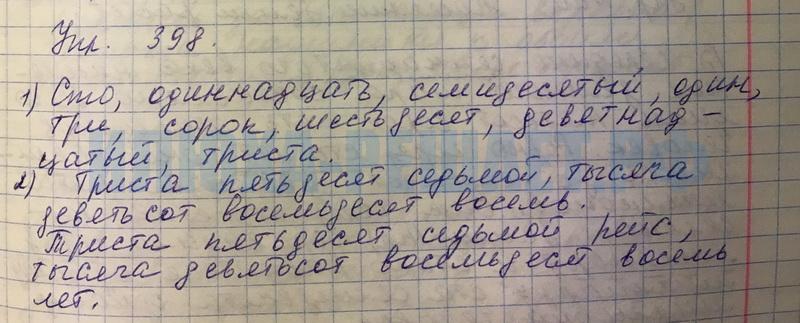 Упр. 398.
1) Сто, одиннадцать, семидесятый, один,
три, сорок, шестьдесят, девятнад-
цатый, триста.
2) Триста пятьдесят седьмой, тысяча
девятьсот восемьдесят восемь.
Триста пятьдесят седьмой рейс,
тысяча девятьсот восемьдесят восемь
лет.